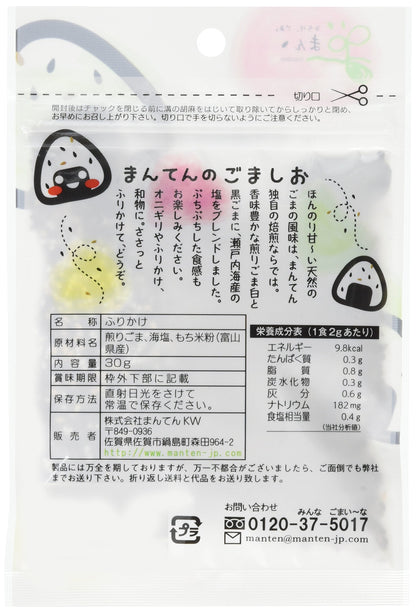 切り口
開封後はチャックを閉じる前に溝の胡麻をはじいて取り除いてからしっかりと閉め、
お早めにお召し上がり下さい。切り口で手を切らないようにご注意ください。
まんてんのごましお
ほんのり甘〜い天然の
ごまの風味は、まんてん
独自の焙煎ならでは。
香味豊かな煎りごま白と
黒ごまに、瀬戸内海産の
塩をブレンドしました。
ぷちぷちした食感も
お楽しみください。
オニギリやふりかけ、
和物に。ささっと
ふりかけて、どうぞ。
名称 ふりかけ
原材料名 煎りごま、海塩、もち米粉(富山
県産)
内容量 30g
賞味期限 枠外下部に記載
保存方法 直射日光をさけて
常温で保存ください。
販売者 株式会社まんてんKW
〒849-0936
佐賀県佐賀市鍋島町森田964-2
http://www.manten-jp.com/
栄養成分表(1食2gあたり)
エネルギー 9.8kcal
たんぱく質 0.3g
脂質 0.8g
炭水化物 0.3g
灰分 0.6g
ナトリウム 182mg
食塩相当量 0.4g
(当社分析値)
製品には万全を期しておりますが、万一不都合がございましたら、ご面倒でも弊社
までお送り下さい。折り返し送料と代品をお送り致します。
お問い合わせ みんな ごまい〜な
0120-37-5017
manten@manten-jp.com
プラ